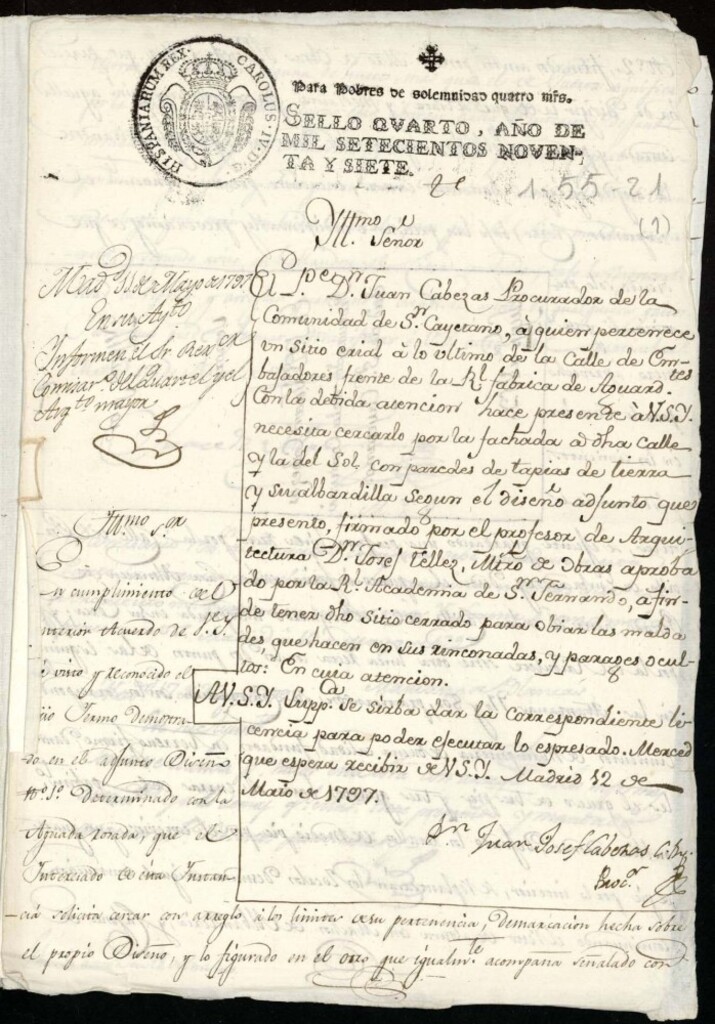 HISPANIARUM REX. CAROLUS. IV. D. G.
Para Pobres de solemnidad quatro mrs.
SELLO QVARTO, AÑO DE
MIL SETECIENTOS NOVEN-
TA Y SIETE.
1-55-21
(1)
Yllmo. Señor
El Pe. Dn. Juan Cabezas Procurador de la
Comunidad de Sn. Cayetano, à quien pertenece
un sitio erial à lo ultimo de la Calle de Em-
bajadores frente de la Rl. fabrica de Aguardtes.
Con la debida atencion hace presente à V.S.Y.
necesita cercarlo por la fachada à dha calle
y la del Sol, con paredes de tapias de tierra
y su albardilla segun el diseño adjunto que
presento, firmado por el profesor de Arqui-
tectura Dn. Josef Tellez, Mtro de Obras aproba
do por la Rl. Academia de Sn. Fernando, a fin
de tener dho sitio cerrado para obiar las malda
des, que hacen en sus rinconadas, y parages ocul-
tos: En cuia atencion.
A V.S.Y. Suppca. se sirba dar la correspondiente li
cencia para poder ejecutar lo espresado. Merced
que espera recibir de V.S.Y. Madrid 12 de
Maio de 1797.
Dn. Juan Josef Cabezas
Procr.
Madd. de Mayo de 1797
En su Aytto
Informen el Sr. Rexor
Comisario del Quartel y el
Arqto mayor
Illmo. Sor
En cumplimiento del
anterior Acuerdo de V.S.Y.
è visto y reconocido el
sitio Yermo demostra-
do en el adjunto Diseño
no. 1o. Determinado con la
Aguada rosada, que el
Interesado de esta Instan-
cia solicita cercar con arreglo à los limites de su pertenencia, demarcacion hecha sobre
el propio Diseño, y lo figurado en el otro que igualmte. acompaña señalado con